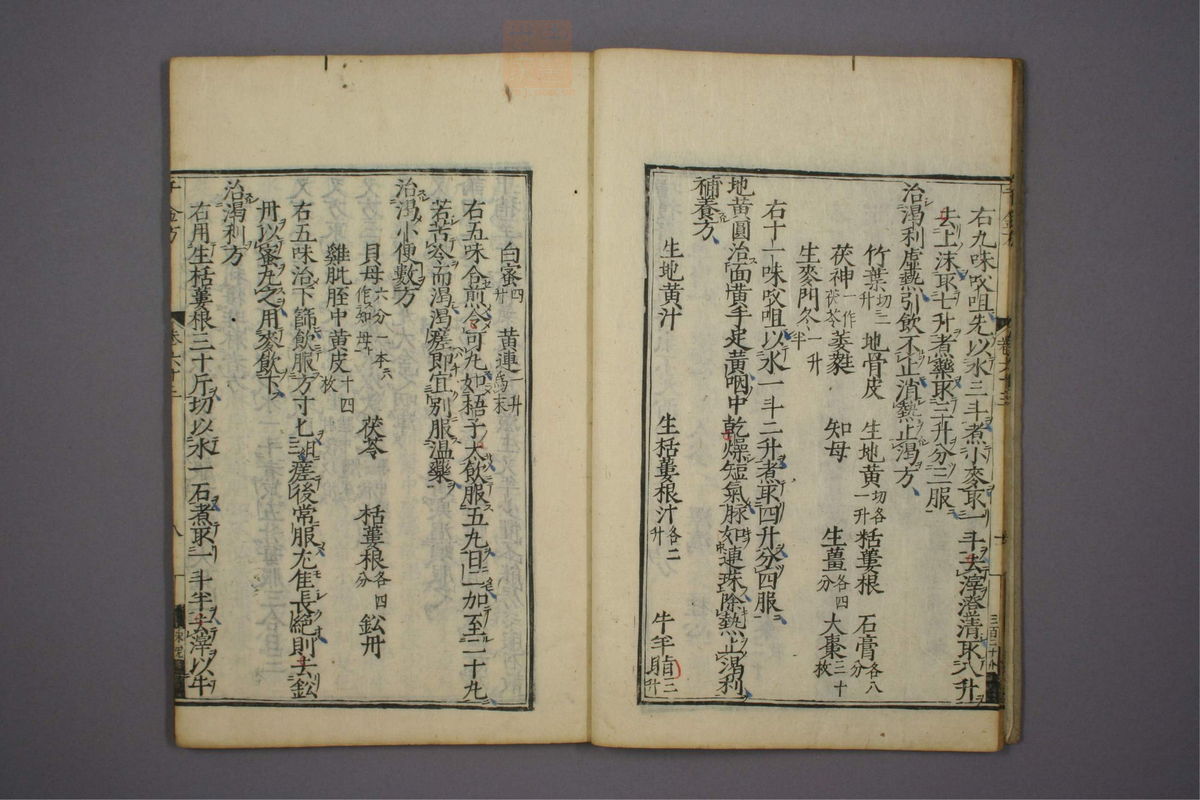 右九味㕮咀先以水三斗煮小麥取一斗去滓澄清取八升
去上沫取七升煮藥取三升分三服
治渴利虛熱引飲不止消熱止渴方
竹葉切二升 地骨皮 生地黃切各一升 栝蔞根 石膏各八分
茯神一作茯苓 萎蕤 知母 生薑各四分 大棗三十枚
生麥門冬一升半
右十一味㕮咀以水一斗二升煮取四升分四服
地黃圓治面黃手足黃咽中乾燥短氣脉如連珠除熱止渴利
補養方
生地黃汁 生栝蔞根汁各二升 牛羊脂三升
白蜜四升 黃連一升為末
右五味合煎令可丸如梧子大飲服五丸日二加至二十丸
若苦冷而渴渴瘥即宜別服溫藥
治渴小便數方
貝母六分一本六作知母 茯苓 栝蔞根各四分 鈆丹一分
雞肶胵中黃皮十四枚
右五味治下篩飲服方寸匕日三瘥後常服尤佳長絕則去鈆
丹以蜜丸之用麥飲下
治渴利方
右用生栝蔞根三十斤切以水一石煮取一斗半去滓以牛